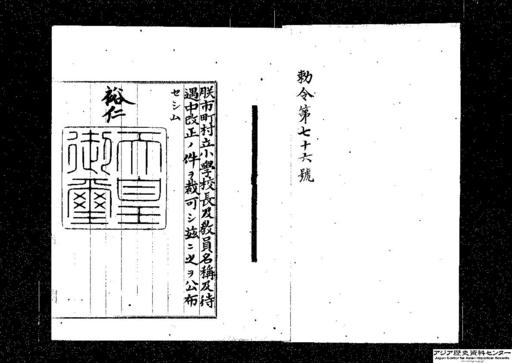 勅令第七十六號
朕市町村立小學校長及敎員名稱及待
遇中改正ノ件ヲ裁可シ茲ニ之ヲ公布
セシム
裕仁
天皇
御璽
アジア歴史資料センター
Japan Center for Asian Historical Records